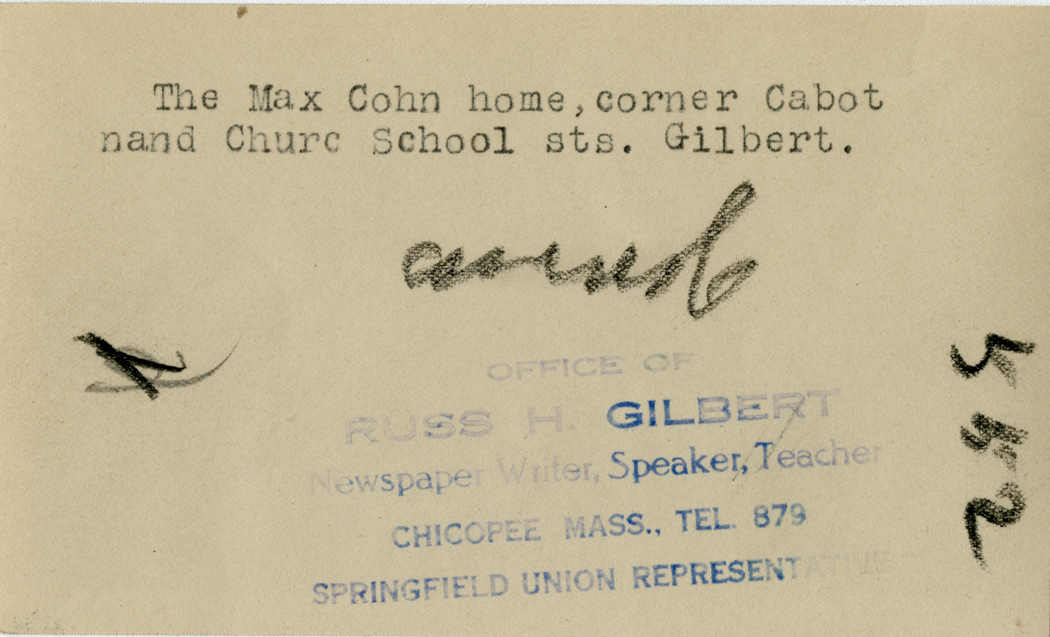 The Max Cohn home, corner Cabot
nand Churc School sts. Gilbert.
OFFICE OF
RUSS H. GILBERT
Newspaper Writer, Speaker, Teacher
CHICOPEE MASS., TEL. 879
SPRINGFIELD UNION REPRESENTATIVE